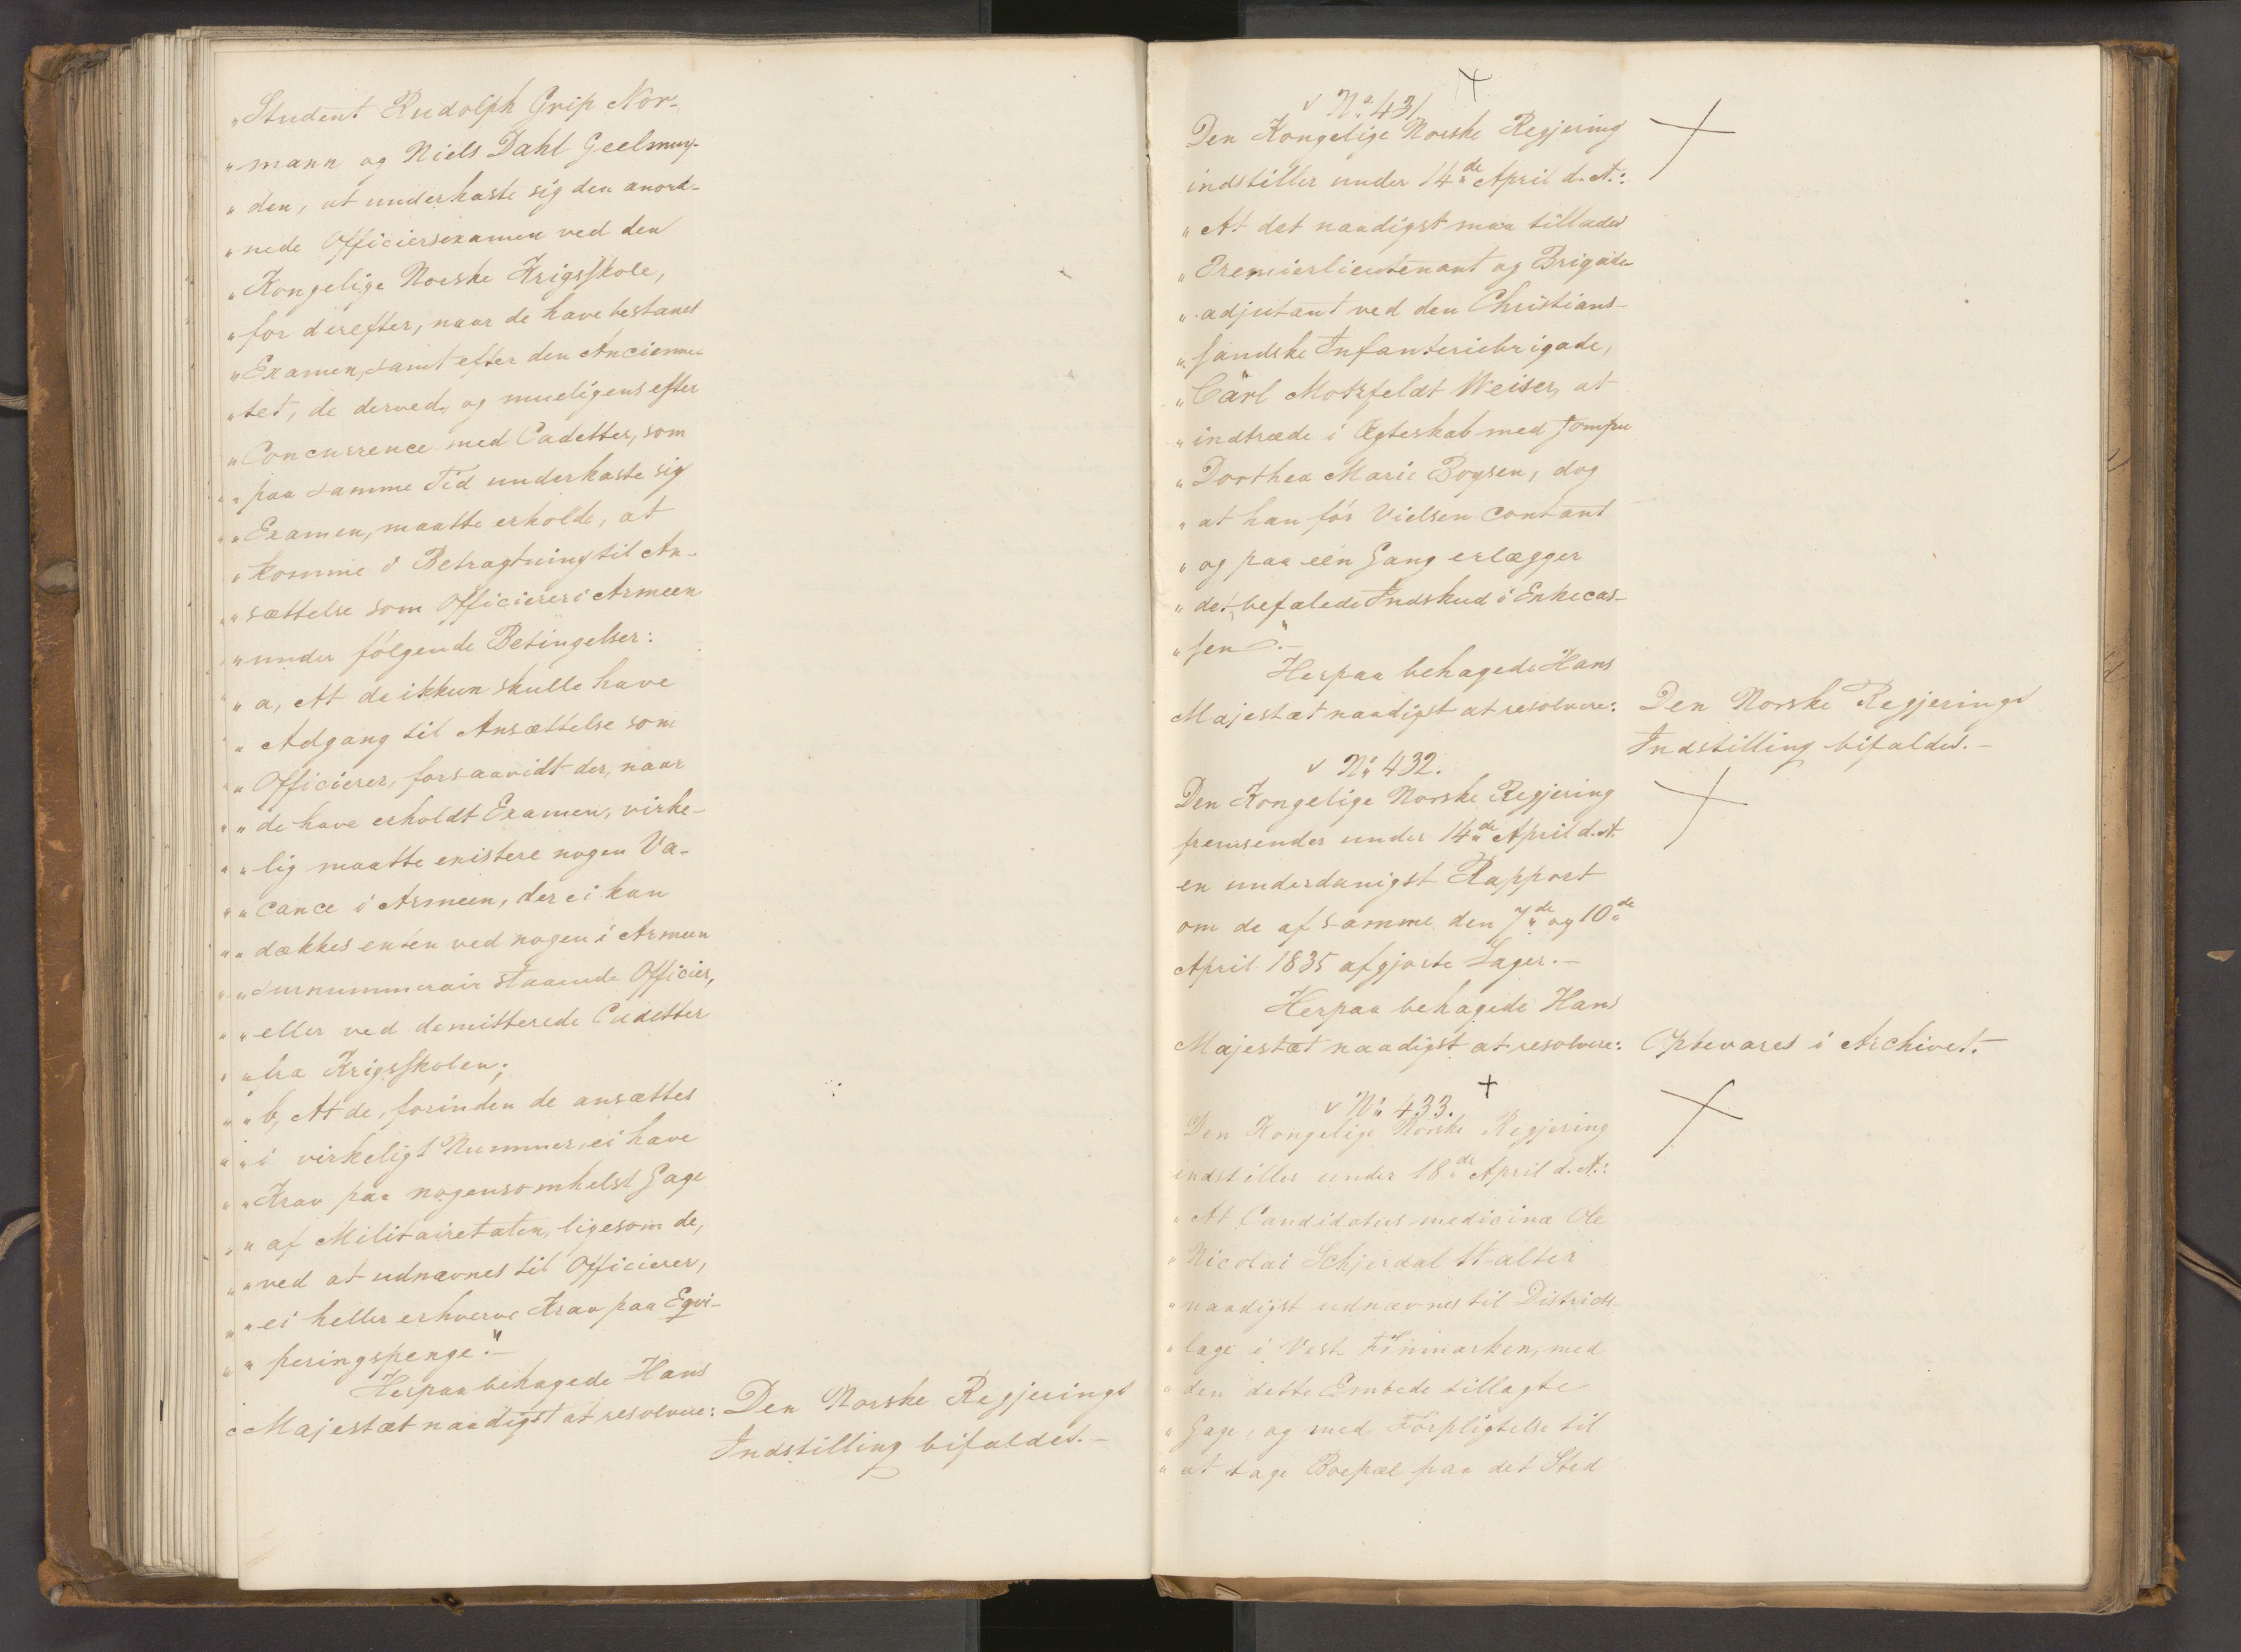 „Student Rudolph Grip Nor-
„mann og Niels Dahl Geelmuy-
„den, at underkaste sig den anord-
„nede Officiersexamen ved den
„Kongelige Norske Krigsskole,
„for derefter, naar de have bestaaet
„Examen, samt efter den Ancienne-
„tet, de derved, og mueligens efter
„Concurrence med Cadetter, som
„paa samme Tid underkaste sig
„Examen, maatte erholde, at
„komme i Betragtning til An-
„sættelse som Officierer i Armeen
„under følgende Betingelser:
„a, At de ikkun skulle have
„Adgang til Ansættelse som
„Officierer, forsaavidt der, naar
„de have erholdt Examen, virke-
„lig maatte existere nogen Va-
„cance i Armeen, der ei kan
„dækkes enten ved nogen i Armeen
„surnummerair staaende Officier,
„eller ved demitterede Cadetter
„fra Krigsskolen;
„b, At de, forinden de ansættes
„i virkeligt Nummer, ei have
„Krav paa nogensomhelst Gage
„af Militairetaten, ligesom de,
„ved at udnævnes til Officierer,
„ei heller erhverve Krav paa Eqvi-
„peringspenge“.-
Herpaa behagede Hans
Majestæt naadigst at resolvere: Den Norske Regjerings
Indstilling bifaldes.-
No. 431.
Den Kongelige Norske Regjering
indstiller under 14de April d. A.:
„At det naadigst maa tillades
„Premierlieutenant og Brigade
„adjutant ved den Christians-
„sandske Infanteriebrigade,
„Carl Motzfeldt Weiser, at
„indtræde i Ægteskab med Jomfru
„Dorthea Marie Boysen, dog
„at han før Vielsen contant
„og paa een Gang erlægger
„det befalede Indskud i Enkecas-
„sen“.-
Herpaa behagede Hans
Majestæt naadigst at resolvere: Den Norske Regjerings
Indstilling bifaldes.-
No. 432.
Den Kongelige Norske Regjering
fremsender under 14de April d. A.
en underdanigst Rapport
om de af samme den 7de og 10de
April 1835 afgjorte Sager.-
Herpaa behagede Hans
Majestæt naadigst at resolvere: Opbevares i Archivet.-
No. 433.
Den Kongelige Norske Regjering
indstiller under 18de April d. A.:
„At Candidatus medicinæ Ole
„Nicolai Schjerdal Walter
„naadigst udnævnes til Districts-
„læge i Vest-Finmarken, med
„den dette Embede tillagte
„Gage, og med Forpligtelse til
„at tage Boepæl paa det Sted